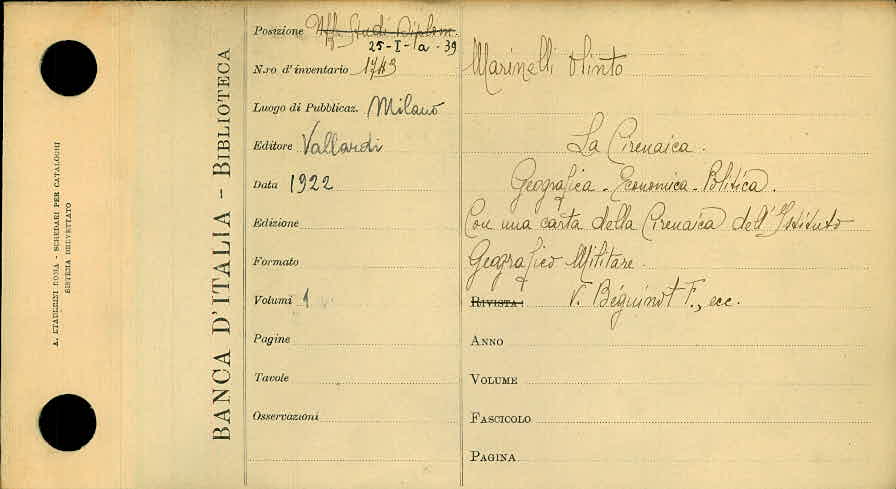 A. STADERINI ROMA - SCHEDARI PER CATALOGHI
SISTEMA BREVETTATO
BANCA D'ITALIA - BIBLIOTECA
Posizione Uff. Studi Diplom.
25-I-1a-39
N.ro d'inventario 1743
Luogo di Pubblicaz. Milano
Editore Vallardi
Data 1922
Edizione
Formato
Volumi 1
Pagine
Tavole
Osservazioni
Marinelli Olinto
La Cirenaica.
Geografica - Economica - Politica.
Con una carta della Cirenaica dell'Istituto
Geografico Militare.
RIVISTA: V. Béguinot F., ecc.
ANNO
VOLUME
FASCICOLO
PAGINA